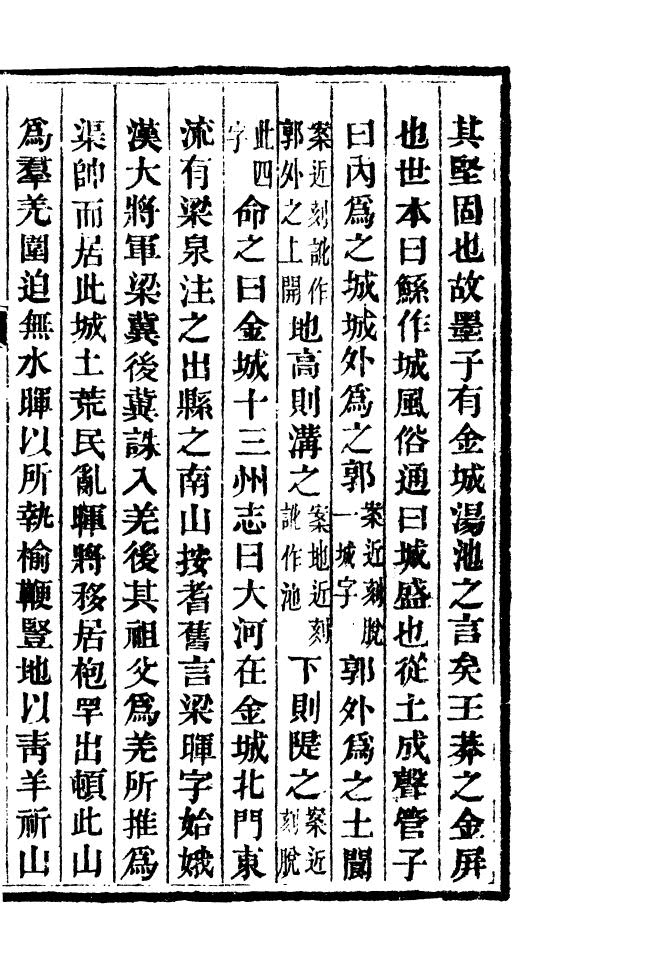 其堅固也故墨子有金城湯池之言矣王莽之金屏
也世本曰鯀作城風俗通曰城盛也從土成聲管子
曰內爲之城城外爲之郭案近刻脫一城字郭外爲之土閬
案近刻訛作郭外之上開地高則溝之案地近刻訛作池下則隄之案近刻脫
此四字命之曰金城十三州志曰大河在金城北門東
流有梁泉注之出縣之南山按耆舊言梁暉字始娥
漢大將軍梁冀後冀誅入羌後其祖父爲羌所推爲
渠帥而居此城土荒民亂暉將移居枹罕出頓此山
爲羣羌圍迫無水暉以所執榆鞭豎地以靑羊祈山